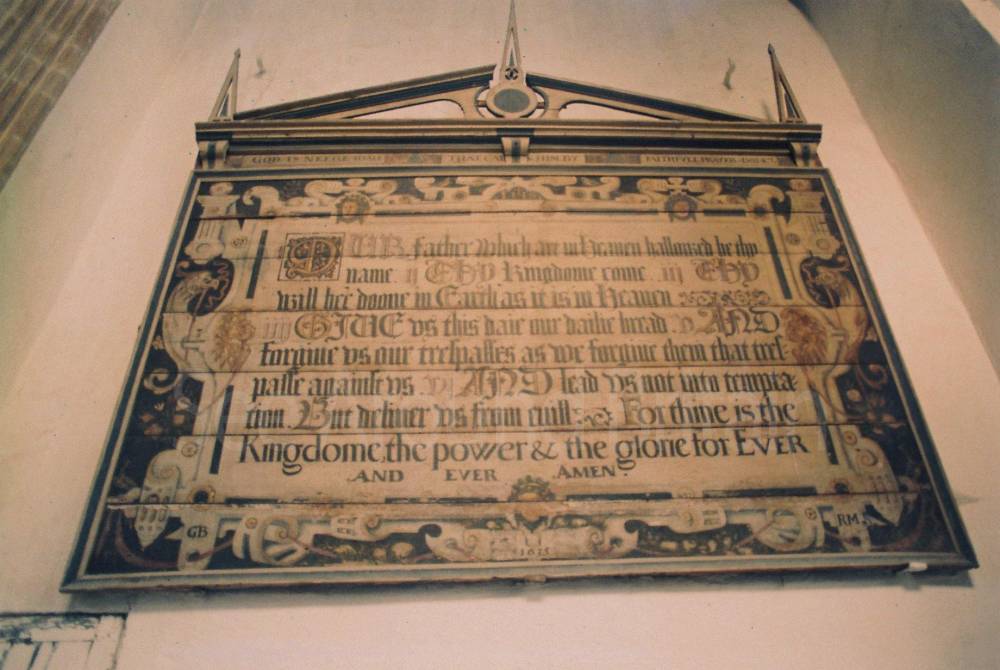 GOD IS
OUR father which art in Heauen hallowed be thy
name. ij THY Kingdome come. iij THY
will bee doone in Earth as it is in Heauen
iiij GIUE vs this daie our dailie bread. v. AND
forgiue vs our trespasses as we forgiue them that tres-
passe against vs. vj AND lead vs not into tempta-
tion. But deliuer vs from euill: For thine is the
Kingdome, the power & the glorie for EVER
AND EVER AMEN.
GB
RM
1635